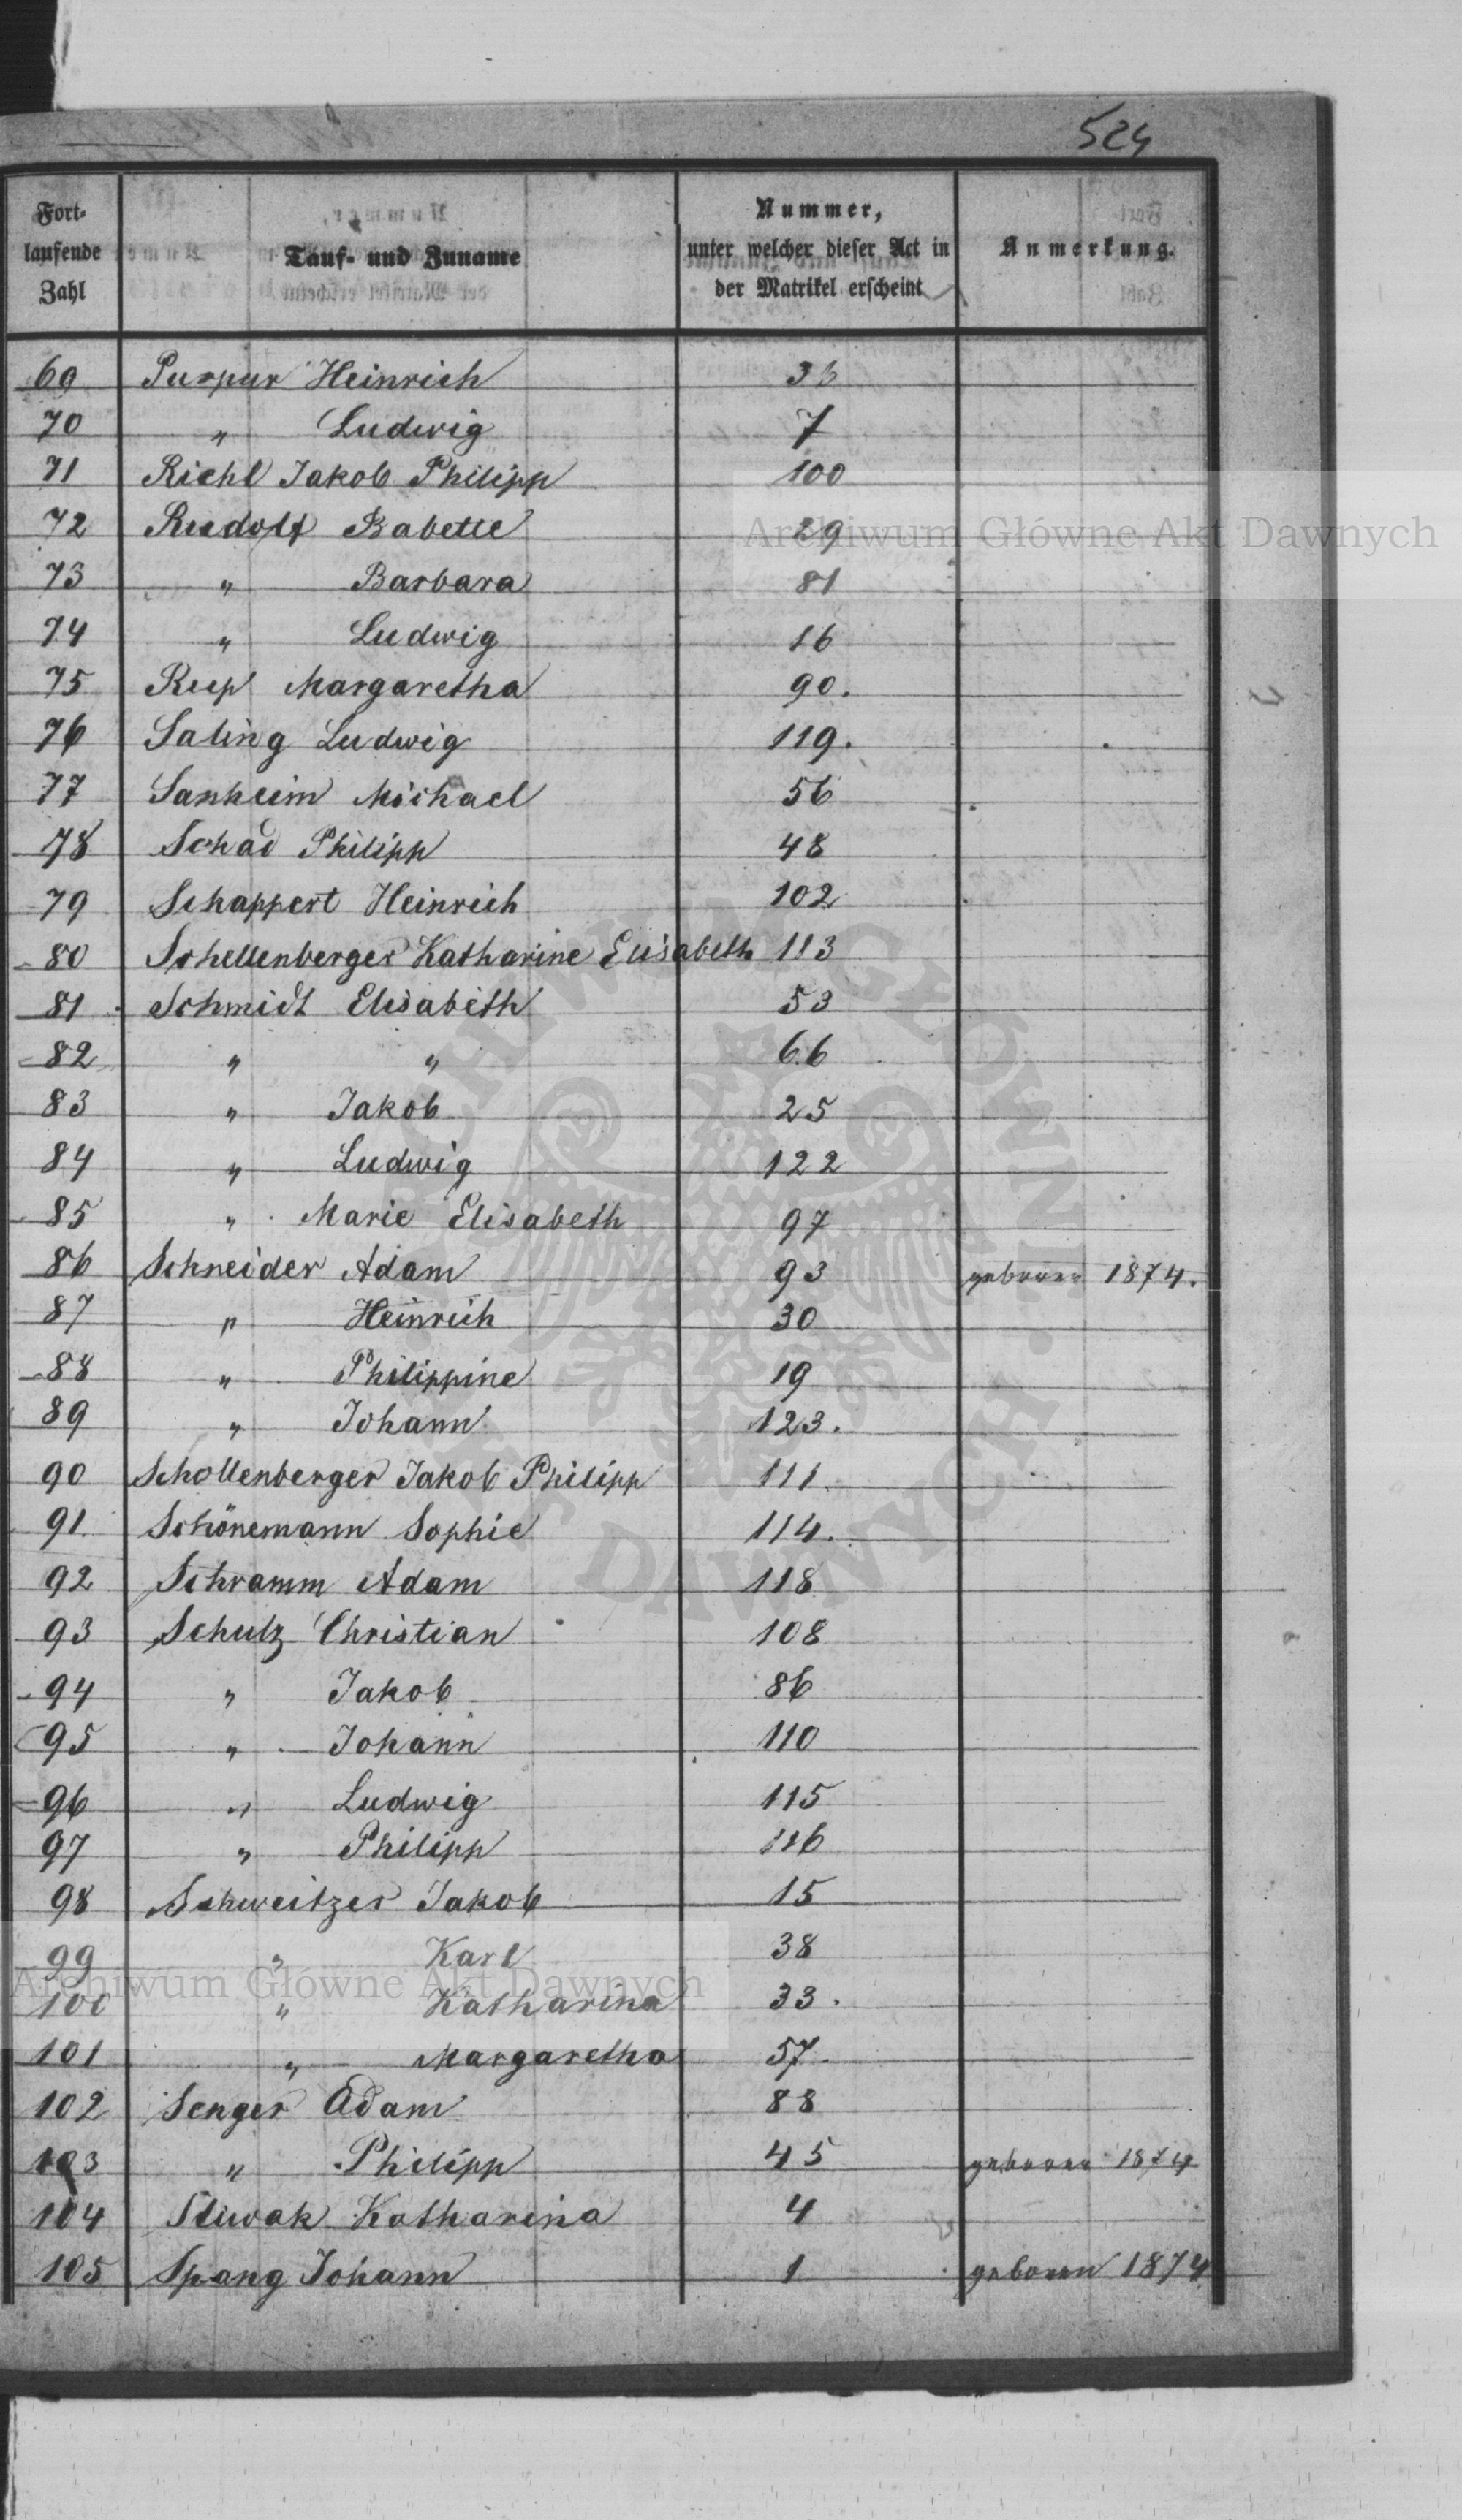 524
Fort-laufende Zahl | Tauf- und Zuname | Nummer, unter welcher dieser Act in der Matrikel erscheint | Anmerkung.
69 Purpur Heinrich 36
70 " Ludwig 7
71 Riehl Jakob Philipp 100
72 Rudolf Babette 29
73 " Barbara 81
74 " Ludwig 16
75 Rup Margaretha 90.
76 Saling Ludwig 119.
77 Sanheim Michael 56
78 Schad Philipp 48
79 Schappert Heinrich 102
80 Schellenberger Katharine Elisabeth 113
81 Schmidt Elisabeth 53
82 " " 66
83 " Jakob 25
84 " Ludwig 122
85 " Marie Elisabeth 97
86 Schneider Adam 93 geboren 1874.
87 " Heinrich 30
88 " Philippine 19
89 " Johann 123.
90 Schollenberger Jakob Philipp 111.
91 Schönemann Sophie 114.
92 Schramm Adam 118
93 Schulz Christian 108
94 " Jakob 86
95 " Johann 110
96 " Ludwig 115
97 " Philipp 116
98 Schweitzer Jakob 15
99 " Karl 38
100 " Katharina 33.
101 " Margaretha 57.
102 Senger Adam 88
103 " Philipp 45 geboren 1874
104 Katharina 4
105 Spang Johann 1 geboren 1874
Archiwum Główne Akt Dawnych
Archiwum Główne Akt Dawnych
ARCHIWUM GŁÓWNE AKT DAWNYCH